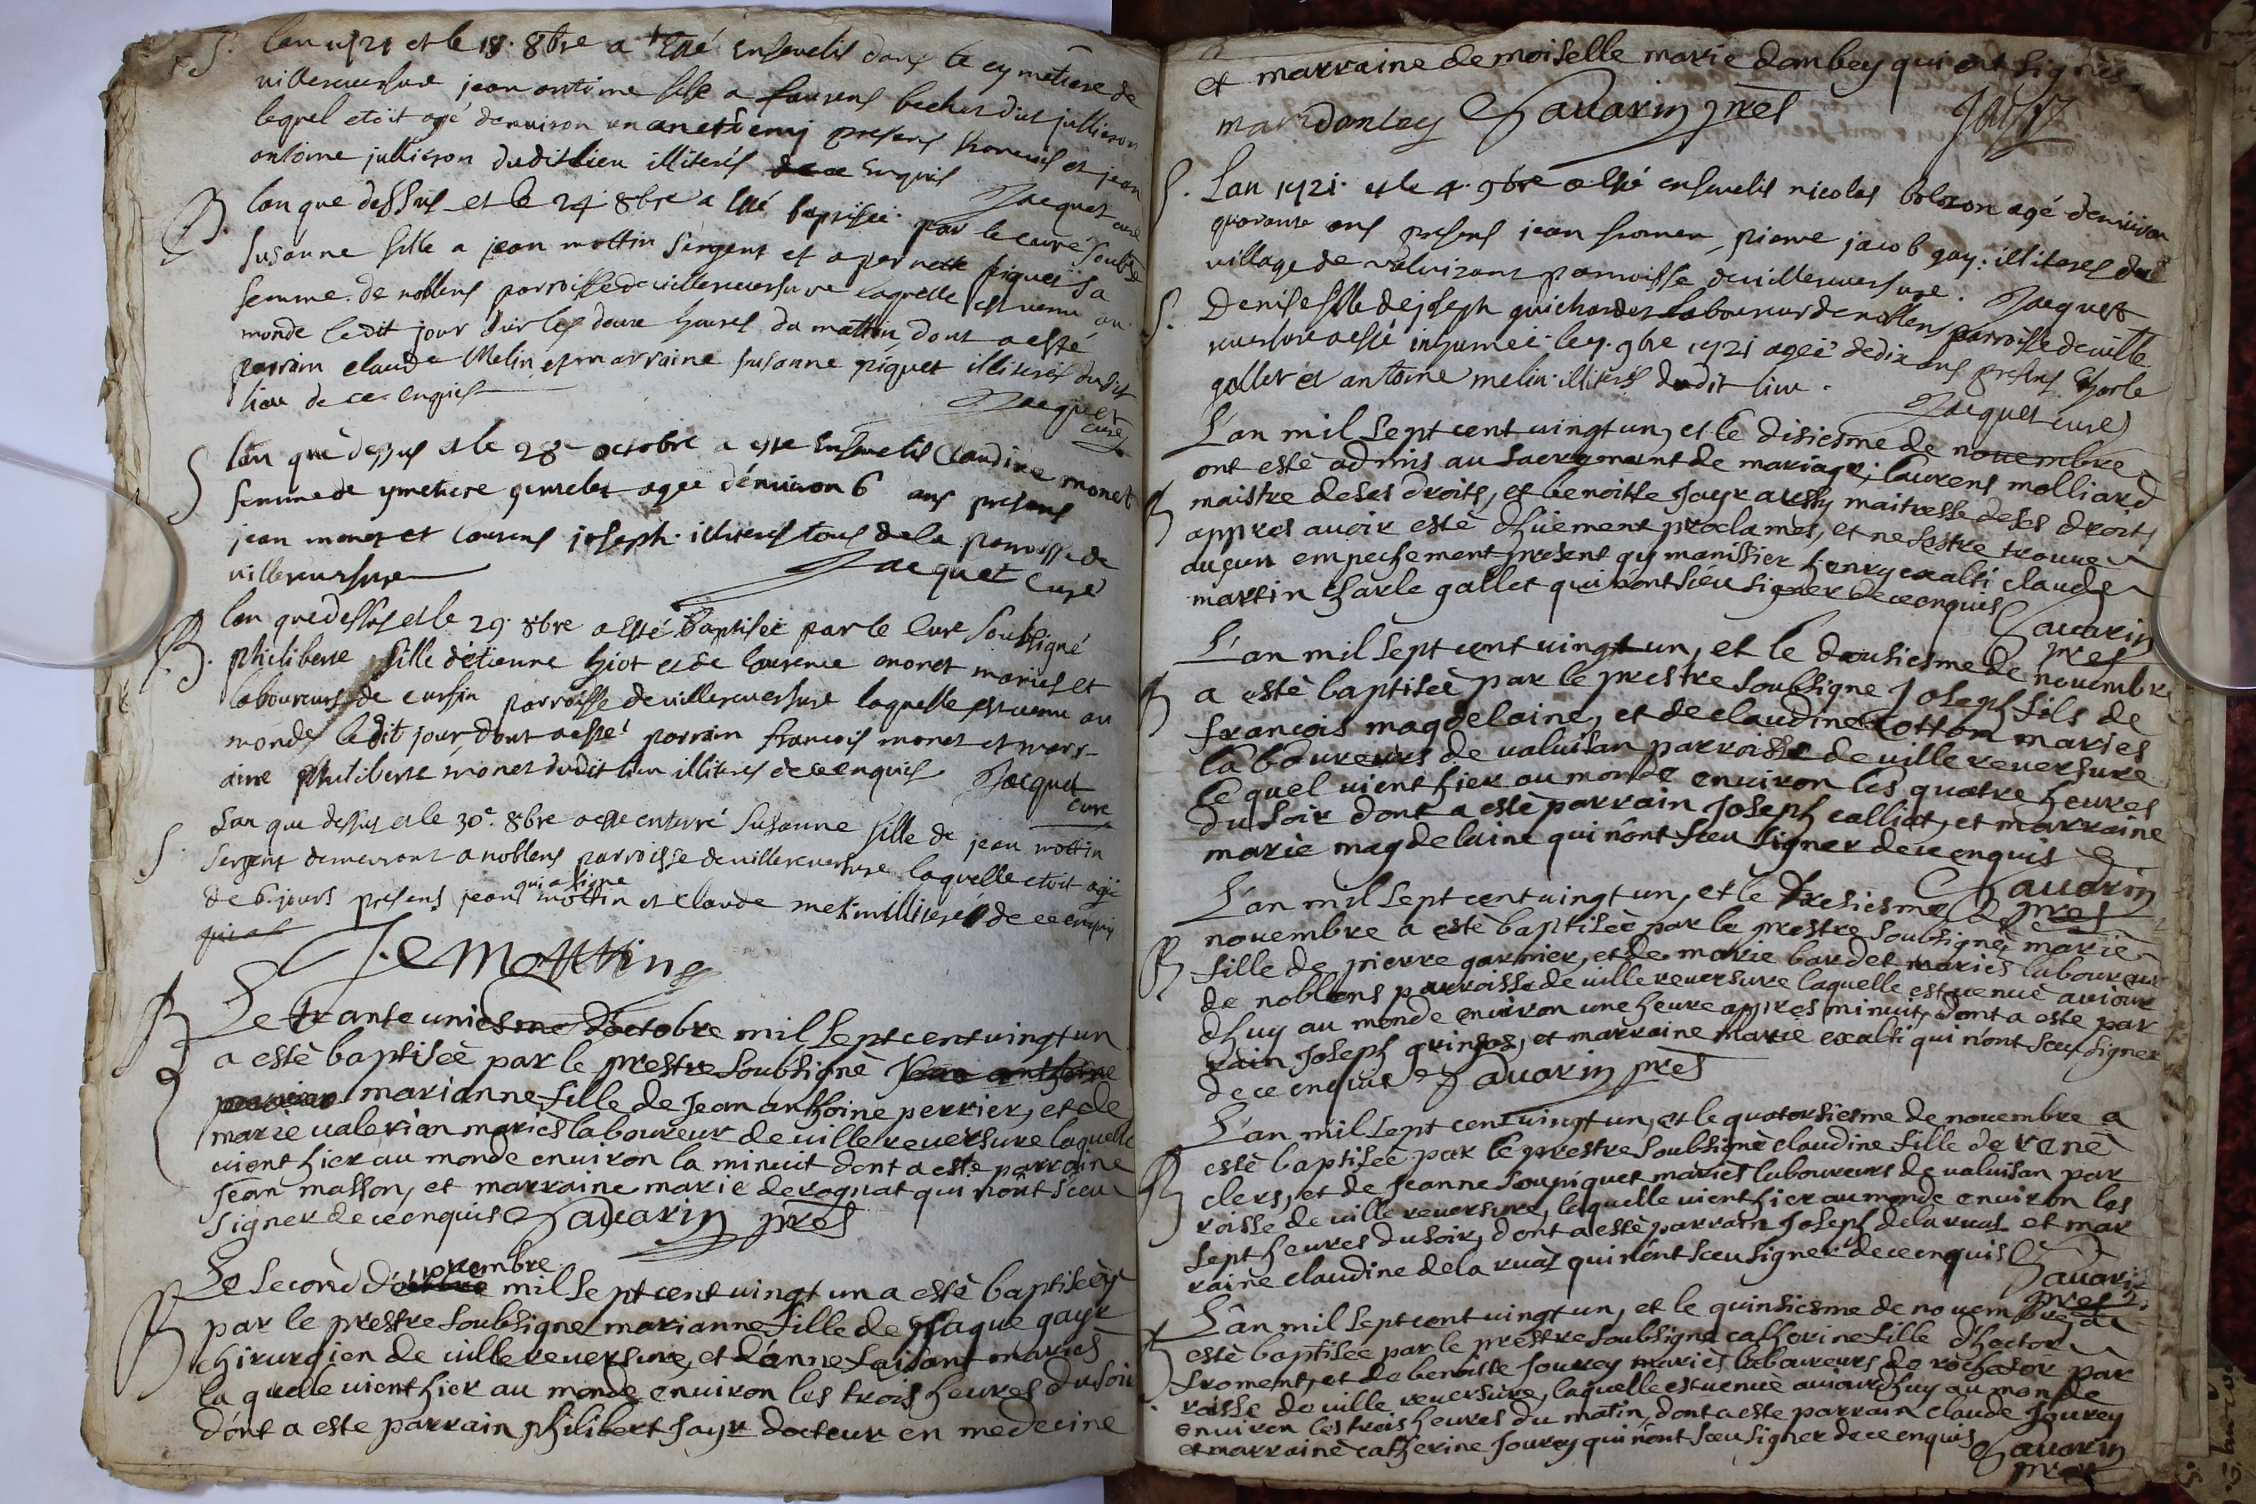 S. lan 1721 et le 18. 8bre a esté ensevelis dans le cymetiere de
villereversure jean antoine fils a laurens bechet dit jullieron
lequel etoit agé denviron un an et demj presens et jean
antoine jullieron dudit lieu illiterés de ce enquis Jacquet curé
B. lan que dessus et le 24 8bre a esté baptisée par le curé soubsé
susanne fille a jean mottin sergent et a pernette piquet sa
femme de noblens parroisse de villereversure laquelle est venu au
monde ledit jour sur les douze heures du mattin dont a esté
parrain claude Melin et marraine susanne piquet illiterés dudit
lieu de ce enquis Jacquet curé
S lan que dessus et le 28e octobre a este ensevelis Claudine monet
femme de agee denviron 6 ans presens
jean monet et laurens joseph illiterés tous de la parroisse de
villereversure Jacquet Curé
B. lan que dessus et le 29. 8bre a esté baptisée par le Curé soubsigné
philiberte fille d'etienne hiot et de laurence monet mariés et
laboureurs de cursin parroisse de villereversure laquelle est venu au
monde ledit jour dont a esté parrain francois monet et marr-
aine philiberte monet dudit lieu illiterés de ce enquis Jacquet curé
S. Lan que dessus et le 30e. 8bre a este enterré susanne fille de jean mottin
sergent demeurant a noblens parroisse de villereversure laquelle etoit agée
de 6. jours presens jean mottin qui a signe et claude melin illiterés de ce enquis
qui a s
J. e Mottin
B Le trante uniesme d'octobre mil sept cent vingt un
a estè baptiseè par le prestre soubsignè Jean anthoine
perrier marianne fille de Jean anthoine perrier, et de
marie valerian mariès laboureur de villereversure laquelle
vient hier au monde environ la minuit dont a este parraine
Jean masson, et marraine marie derognat qui nônt sceu
signer de ce enquis Savarin pres
B Le second d'octobre novembre mil sept cent vingt un a estè baptiseè
par le prestre soubsigne marianne fille de Jsaque gayr
chirurgien de villereversure, et d'anne faisant mariès
la quelle vient hier au monde environ les trois heures du soir
dont a este parrain philibert Jayr docteur en medecine
et marraine demoiselle marie dambey qui ont signès
marie dambey Savarin pres Jayr
S. Lan 1721. et le 4. 9bre a esté ensevelis nicolas bolozon agé denviron
quarante ans presens jean froment, pierre jacob gay: illiteres du
village de valuisant parroisse de villereversure. Jacquet
S. Denise fille de joseph guichardet laboureur de noblens parroisse de ville
reversure a esté inhumeé le 7. 9bre 1721 ageé de dix ans presens Charle
gallet et antoine melin illiterés dudit lieu. Jacquet curé
B L'an mil sept cent vingt un, et le disiesme de novembre
ont estè admis au sacrement de mariage, laurens molliard
maistre de ses droits, et benoitte Jayr aussy maitresse de ses droits
appres avoir estè dhüement proclamès, et ne sestre trouve
auçun empechement presens gy manissier henry exalti claude
martin charle gallet qui nont sceu signer de ce enquis Savarin pres
B L'an mil sept cent vingt un, et le dousiesme de novembre
a estè baptiseè par le prestre soubsigne Joseph fils de
françois magdelaine, et de claudine Cottom mariès
laboureurs de valuisan parroisse de villereversure
le quel vient hier au monde environ les quatre heures
du soir dont a estè parrain Joseph calliat, et marraine
marie magdelaine qui nônt sceu signer de ce enquis
Savarin pres
B L'an mil sept cent vingt un, et le tresiesme de
novembre a estè baptiseè par le prestre soubsignè marie
fille de pierre garnier, et de marie bardet mariès laboureur
de noblens parroisse de villereversure laquelle est venuè aviour
dhuy au monde environ une heure appres minuit, dont a este par
rain Joseph grinsos, et marraine marie exalti qui nônt sceu signer
de ce enquis Savarin pres
B L'an mil sept cent vingt un, et le quatorsiesme de novembre a
estè baptiseè par le prestre soubsignè claudine fille de renè
clers, et de Jeanne soupiquet mariès laboureurs de valuisan par
roisse de villereversure, laquelle vient hier au monde environ les
sept heures du soir, dont a estè parrain Joseph dela ruaz et mar
raine claudine dela ruaz qui nônt sceu signer de ce enquis Savarin pres
B L'an mil sept cent vingt un, et le quinsiesme de novembre, a
estè baptisee par le prestre soubsignè catherine fille d'hector
froment, et de benoitte Jourey mariès laboureurs de rochefor par
roisse de villereversure, laquelle est venuè aviourdhuy au monde
environ les trois heures du matin, dont a este parrain claude Jourey
et marraine catherine Jourey qui nônt sceu signer de ce enquis Savarin
pres